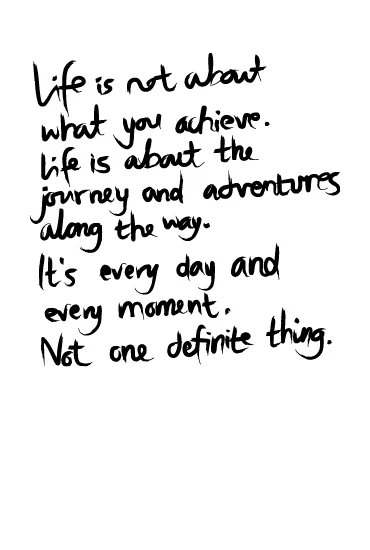 Life is not about
what you achieve.
Life is about the
journey and adventures
along the way.
It's every day and
every moment.
Not one definite thing.